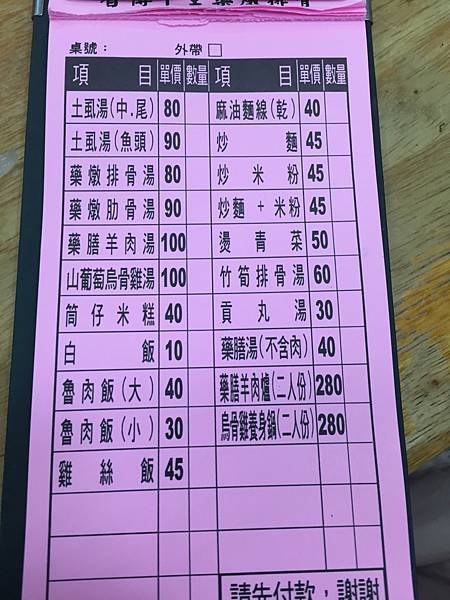 桌號： 外帶□
項目 單價 數量 項目 單價 數量
土虱湯(中.尾) 80 麻油麵線(乾) 40
土虱湯(魚頭) 90 炒麵 45
藥燉排骨湯 80 炒米粉 45
藥燉肋骨湯 90 炒麵+米粉 45
藥膳羊肉湯 100 燙青菜 50
山葡萄烏骨雞湯 100 竹筍排骨湯 60
筒仔米糕 40 貢丸湯 30
白飯 10 藥膳湯(不含肉) 40
魯肉飯(大) 40 藥膳羊肉爐(二人份) 280
魯肉飯(小) 30 烏骨雞養身鍋(二人份) 280
雞絲飯 45
請先付款，謝謝